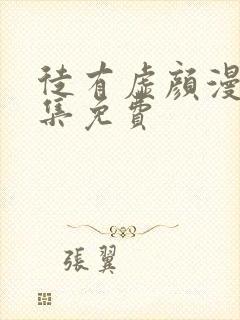 徒有虛顏漫
集免費
張翼